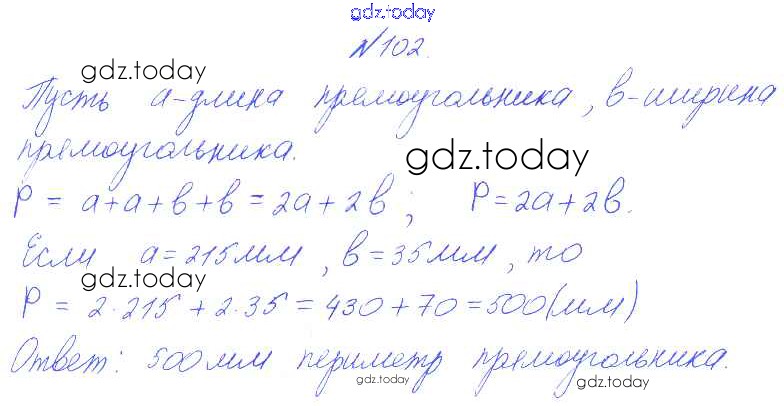 gdz.today
№102.
gdz.today
Пусть a-длина прямоугольника, b-ширина
прямоугольника.
gdz.today
P = a+a+b+b = 2a+2b; P=2a+2b.
Если a=215мм, b=35мм, то
gdz.today
P = 2·215+2·35=430+70=500(мм)
Ответ: 500мм периметр прямоугольника.
gdz.today
gdz.today